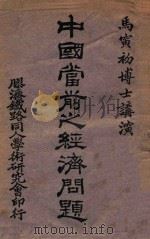 馬寅初博士講演
中國當前之經濟問題
膠濟鐵路同人學術研究會印行